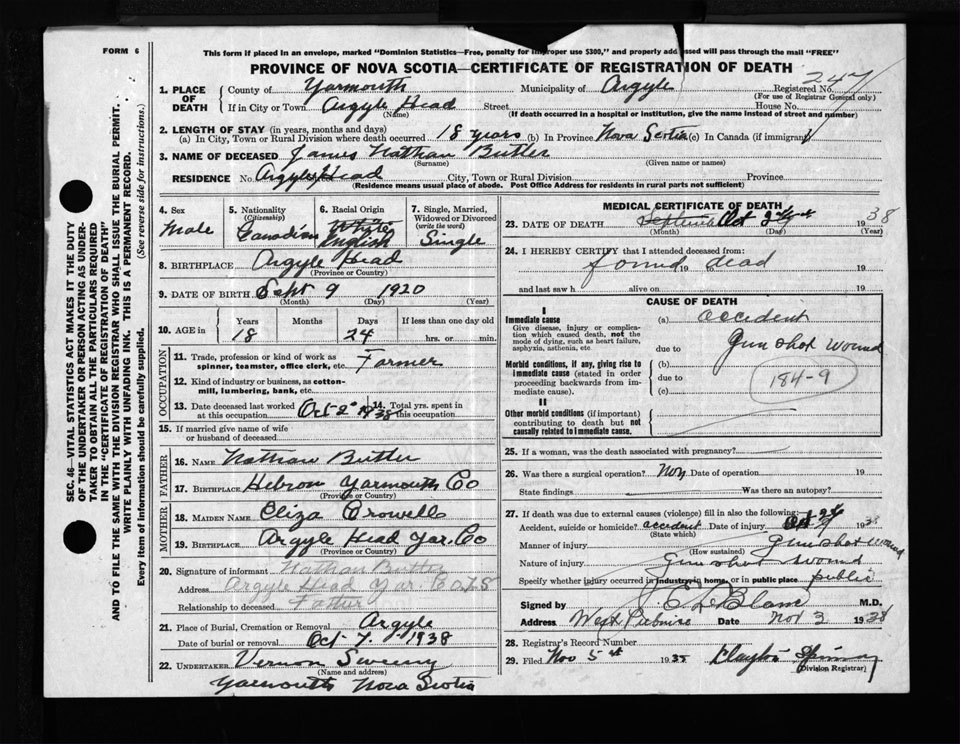 FORM 6
This form if placed in an envelope, marked "Dominion Statistics—Free, penalty for improper use $300," and properly addressed will pass through the mail "FREE"
PROVINCE OF NOVA SCOTIA—CERTIFICATE OF REGISTRATION OF DEATH
247
1. PLACE OF DEATH County of Yarmouth Municipality of Argyle Registered No.
(For use of Registrar General only)
If in City or Town Argyle Head Street House No.
(Name) (If death occurred in a hospital or institution, give the name instead of street and number)
2. LENGTH OF STAY (in years, months and days)
(a) In City, Town or Rural Division where death occurred 18 years (b) In Province Nova Scotia (c) In Canada (if immigrant)
3. NAME OF DECEASED James Nathan Butler
(Surname) (Given name or names)
RESIDENCE No. Argyle Head City, Town or Rural Division Province
(Residence means usual place of abode. Post Office Address for residents in rural parts not sufficient)
4. Sex Male
5. Nationality (Citizenship) Canadian
6. Racial Origin White English
7. Single, Married, Widowed or Divorced (write the word) Single
8. BIRTHPLACE Argyle Head
(Province or Country)
9. DATE OF BIRTH Sept 9 1920
(Month) (Day) (Year)
10. AGE in Years Months Days If less than one day old
18 24 hrs. or min.
OCCUPATION
11. Trade, profession or kind of work as spinner, teamster, office clerk, etc. Farmer
12. Kind of industry or business, as cotton-mill, lumbering, bank, etc.
13. Date deceased last worked at this occupation Oct 2 1938
14. Total yrs. spent in this occupation
15. If married give name of wife or husband of deceased
FATHER
16. NAME Nathan Butler
17. BIRTHPLACE Hebron Yarmouth Co
(Province or Country)
MOTHER
18. MAIDEN NAME Eliza Crowell
19. BIRTHPLACE Argyle Head Yar. Co
(Province or Country)
20. Signature of informant Nathan Butler
Address Argyle Head Yar. Co N.S
Relationship to deceased Father
21. Place of Burial, Cremation or Removal Argyle
Date of burial or removal Oct 7. 1938
22. UNDERTAKER Vernon Sweeny
(Name and address)
Yarmouth Nova Scotia
MEDICAL CERTIFICATE OF DEATH
23. DATE OF DEATH Oct 1938
(Month) (Day) (Year)
24. I HEREBY CERTIFY that I attended deceased from:
found 19 to dead 19
and last saw h alive on 19
CAUSE OF DEATH
I
Immediate cause (a) accident
Give disease, injury or complication which caused death, not the mode of dying, such as heart failure, asphyxia, asthenia, etc.
due to Gun shot wound
Morbid conditions, if any, giving rise to immediate cause (stated in order proceeding backwards from immediate cause).
(b)
due to 184-9
(c)
II
Other morbid conditions (if important) contributing to death but not causally related to immediate cause.
25. If a woman, was the death associated with pregnancy?
26. Was there a surgical operation? Non Date of operation 19
State findings Was there an autopsy?
27. If death was due to external causes (violence) fill in also the following:
Accident, suicide or homicide? accident Date of injury Oct 1938
(State which)
Manner of injury Gun shot wound
(How sustained)
Nature of injury Gun shot wound
Specify whether injury occurred in industry, in home, or in public place public
Signed by C LeBlanc M.D.
Address West Pubnico Date Nov 3 1938
28. Registrar's Record Number
29. Filed Nov 5th 19 Clayton
(Division Registrar)
SEC. 46—VITAL STATISTICS ACT MAKES IT THE DUTY
OF THE UNDERTAKER OR PERSON ACTING AS UNDER-
TAKER TO OBTAIN ALL THE PARTICULARS REQUIRED
IN THE "CERTIFICATE OF REGISTRATION OF DEATH"
AND TO FILE THE SAME WITH THE DIVISION REGISTRAR WHO SHALL ISSUE THE BURIAL PERMIT.
WRITE PLAINLY WITH UNFADING INK. THIS IS A PERMANENT RECORD.
Every item of information should be carefully supplied. (See reverse side for instructions.)